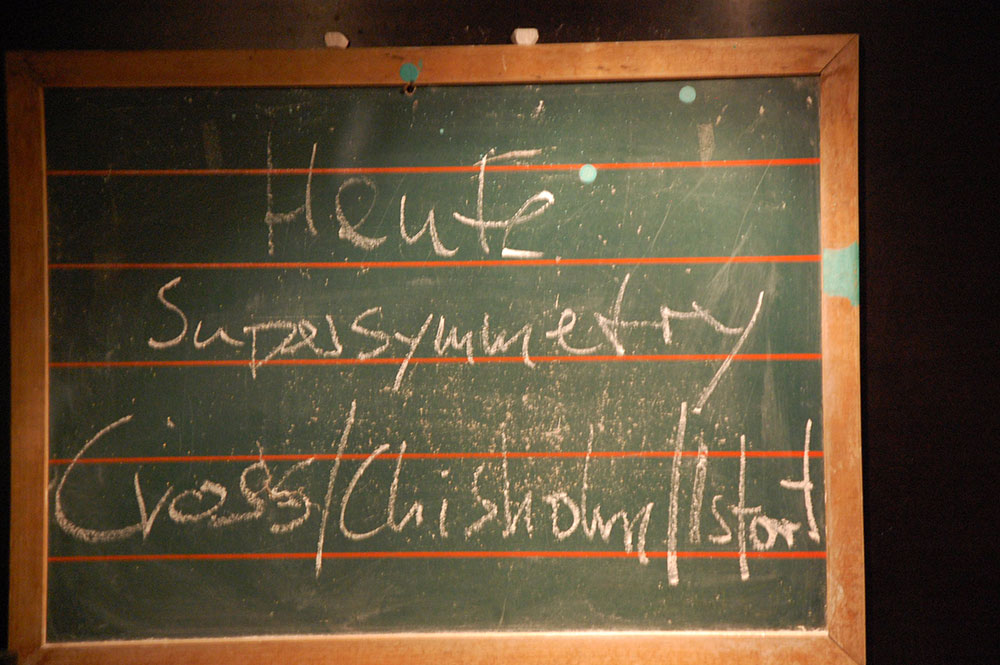 Heute
Supersymmetry
Cross/Chisholm//Istort